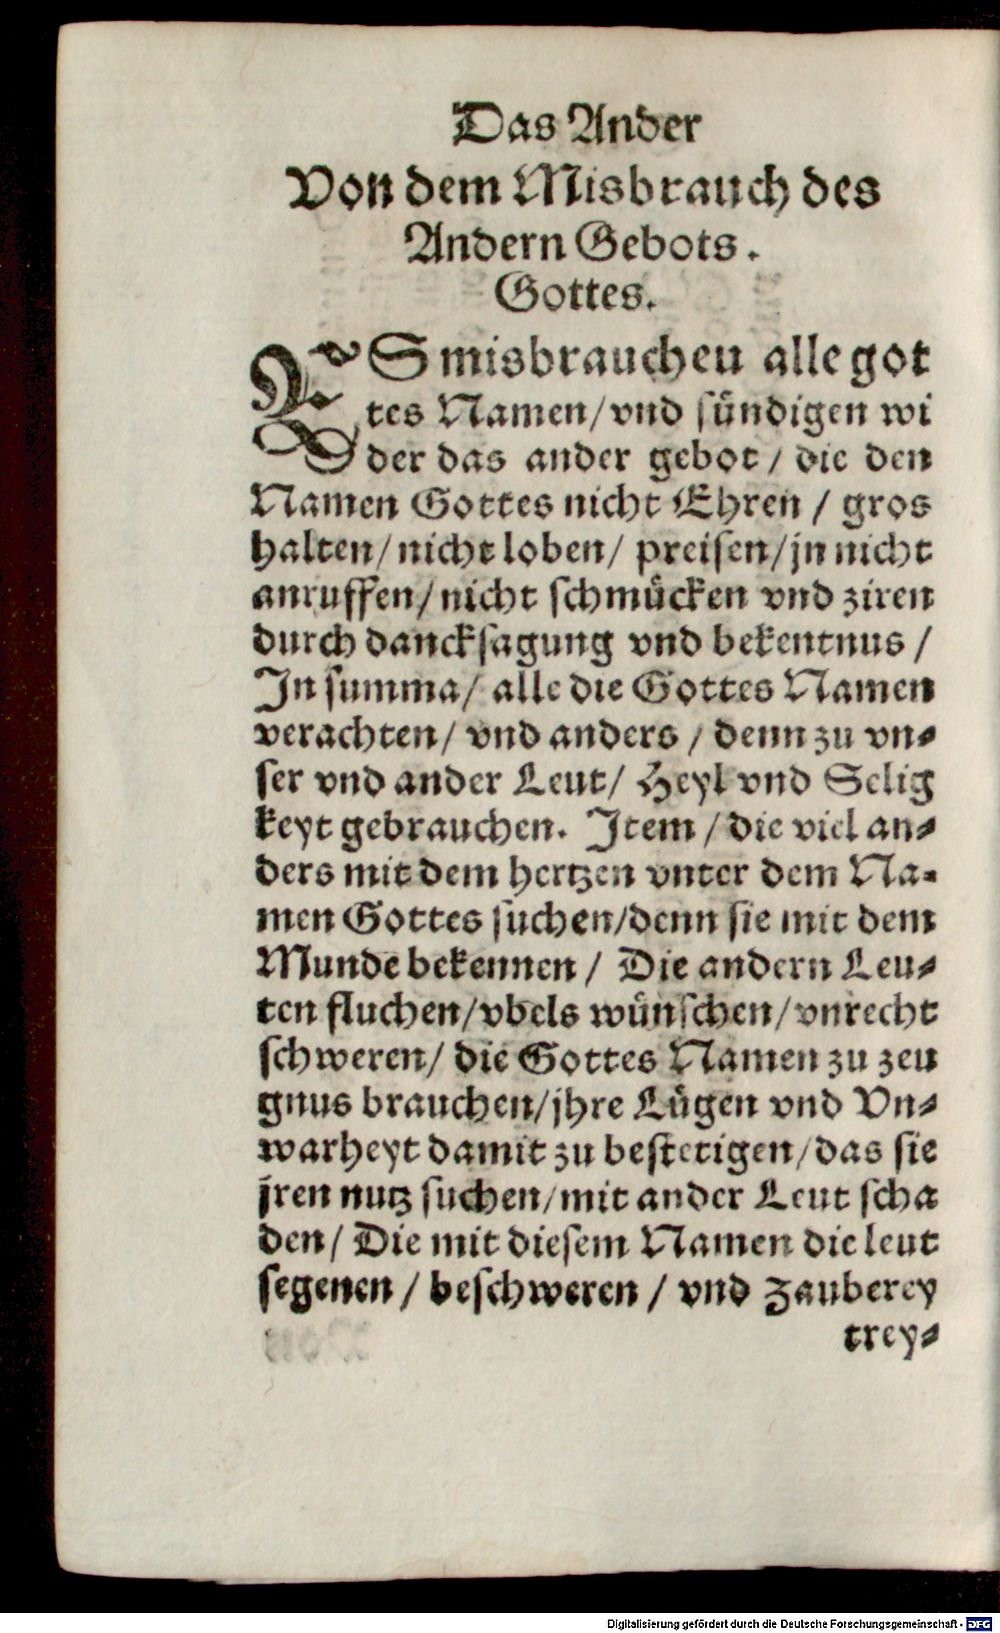 Das Ander
Von dem Misbrauch des
Andern Gebots.
Gottes.
ES misbrauchen alle got
tes Namen/vnd sündigen wi
der das ander gebot/ die den
Namen Gottes nicht Ehren / gros
halten/nicht loben/ preisen/jn nicht
anruffen/nicht schmücken vnd ziren
durch dancksagung vnd bekentnus /
In summa/ alle die Gottes Namen
verachten/ vnd anders / denn zu vn-
ser vnd ander Leut/ Heyl vnd Selig
keyt gebrauchen. Item / die viel an-
ders mit dem hertzen vnter dem Na-
men Gottes suchen/denn sie mit dem
Munde bekennen / Die andern Leu-
ten fluchen/vbels wünschen/vnrecht
schweren/ die Gottes Namen zu zeu
gnus brauchen/jhre Lügen vnd Vn-
warheyt damit zu bestetigen/das sie
jren nutz suchen/mit ander Leut scha
den/ Die mit diesem Namen die leut
segenen / beschweren / vnd Zauberey
trey-
Digitalisierung gefördert durch die Deutsche Forschungsgemeinschaft - DFG